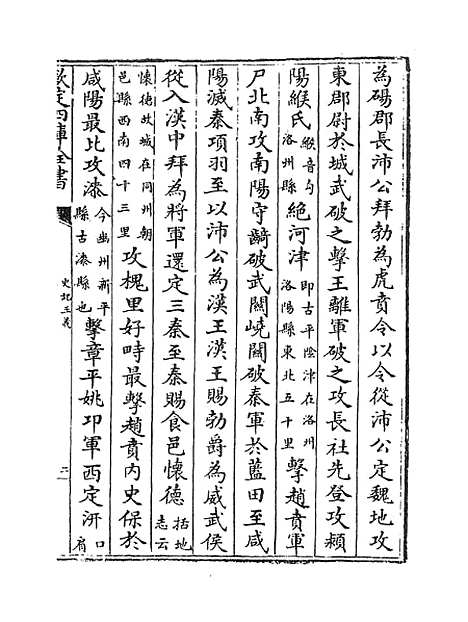 為碭郡長沛公拜勃為虎賁令以令從沛公定魏地攻
東郡尉於城武破之擊王離軍破之攻長社先登攻潁
陽緱氏緱音勾洛州縣絶河津即古平隂津在洛州洛陽縣東北五十里擊趙賁軍
尸北南攻南陽守齮破武闗嶢闗破秦軍於藍田至咸
陽滅秦項羽至以沛公為漢王漢王賜勃爵為威武侯
從入漢中拜為將軍還定三秦至秦賜食邑懷德括地志云
懷徳故城在同州朝邑縣西南四十三里攻槐里好畤最擊趙賁内史保於
咸陽最北攻漆今豳州新平縣古漆縣也擊章平姚卬軍西定汧口肩
欽定四庫全書
史記正義
二